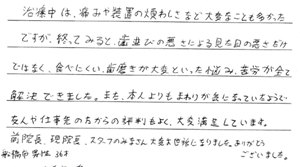 治療中は、痛みや装置の煩わしさなど大変なことも多かった
ですが、終ってみると、歯並びの悪さによる見た目の悪さだけ
ではなく、食べにくい、歯磨きが大変といった悩み、苦労が全て
解決できました。また、本人よりもまわりが気になっていたようで
友人や仕事先の方からの評判もよく、大変満足しています。
前院長、現院長、スタッフのみなさん大変お世話になりました。ありがとう
ございました。
船橋市 男性 36才